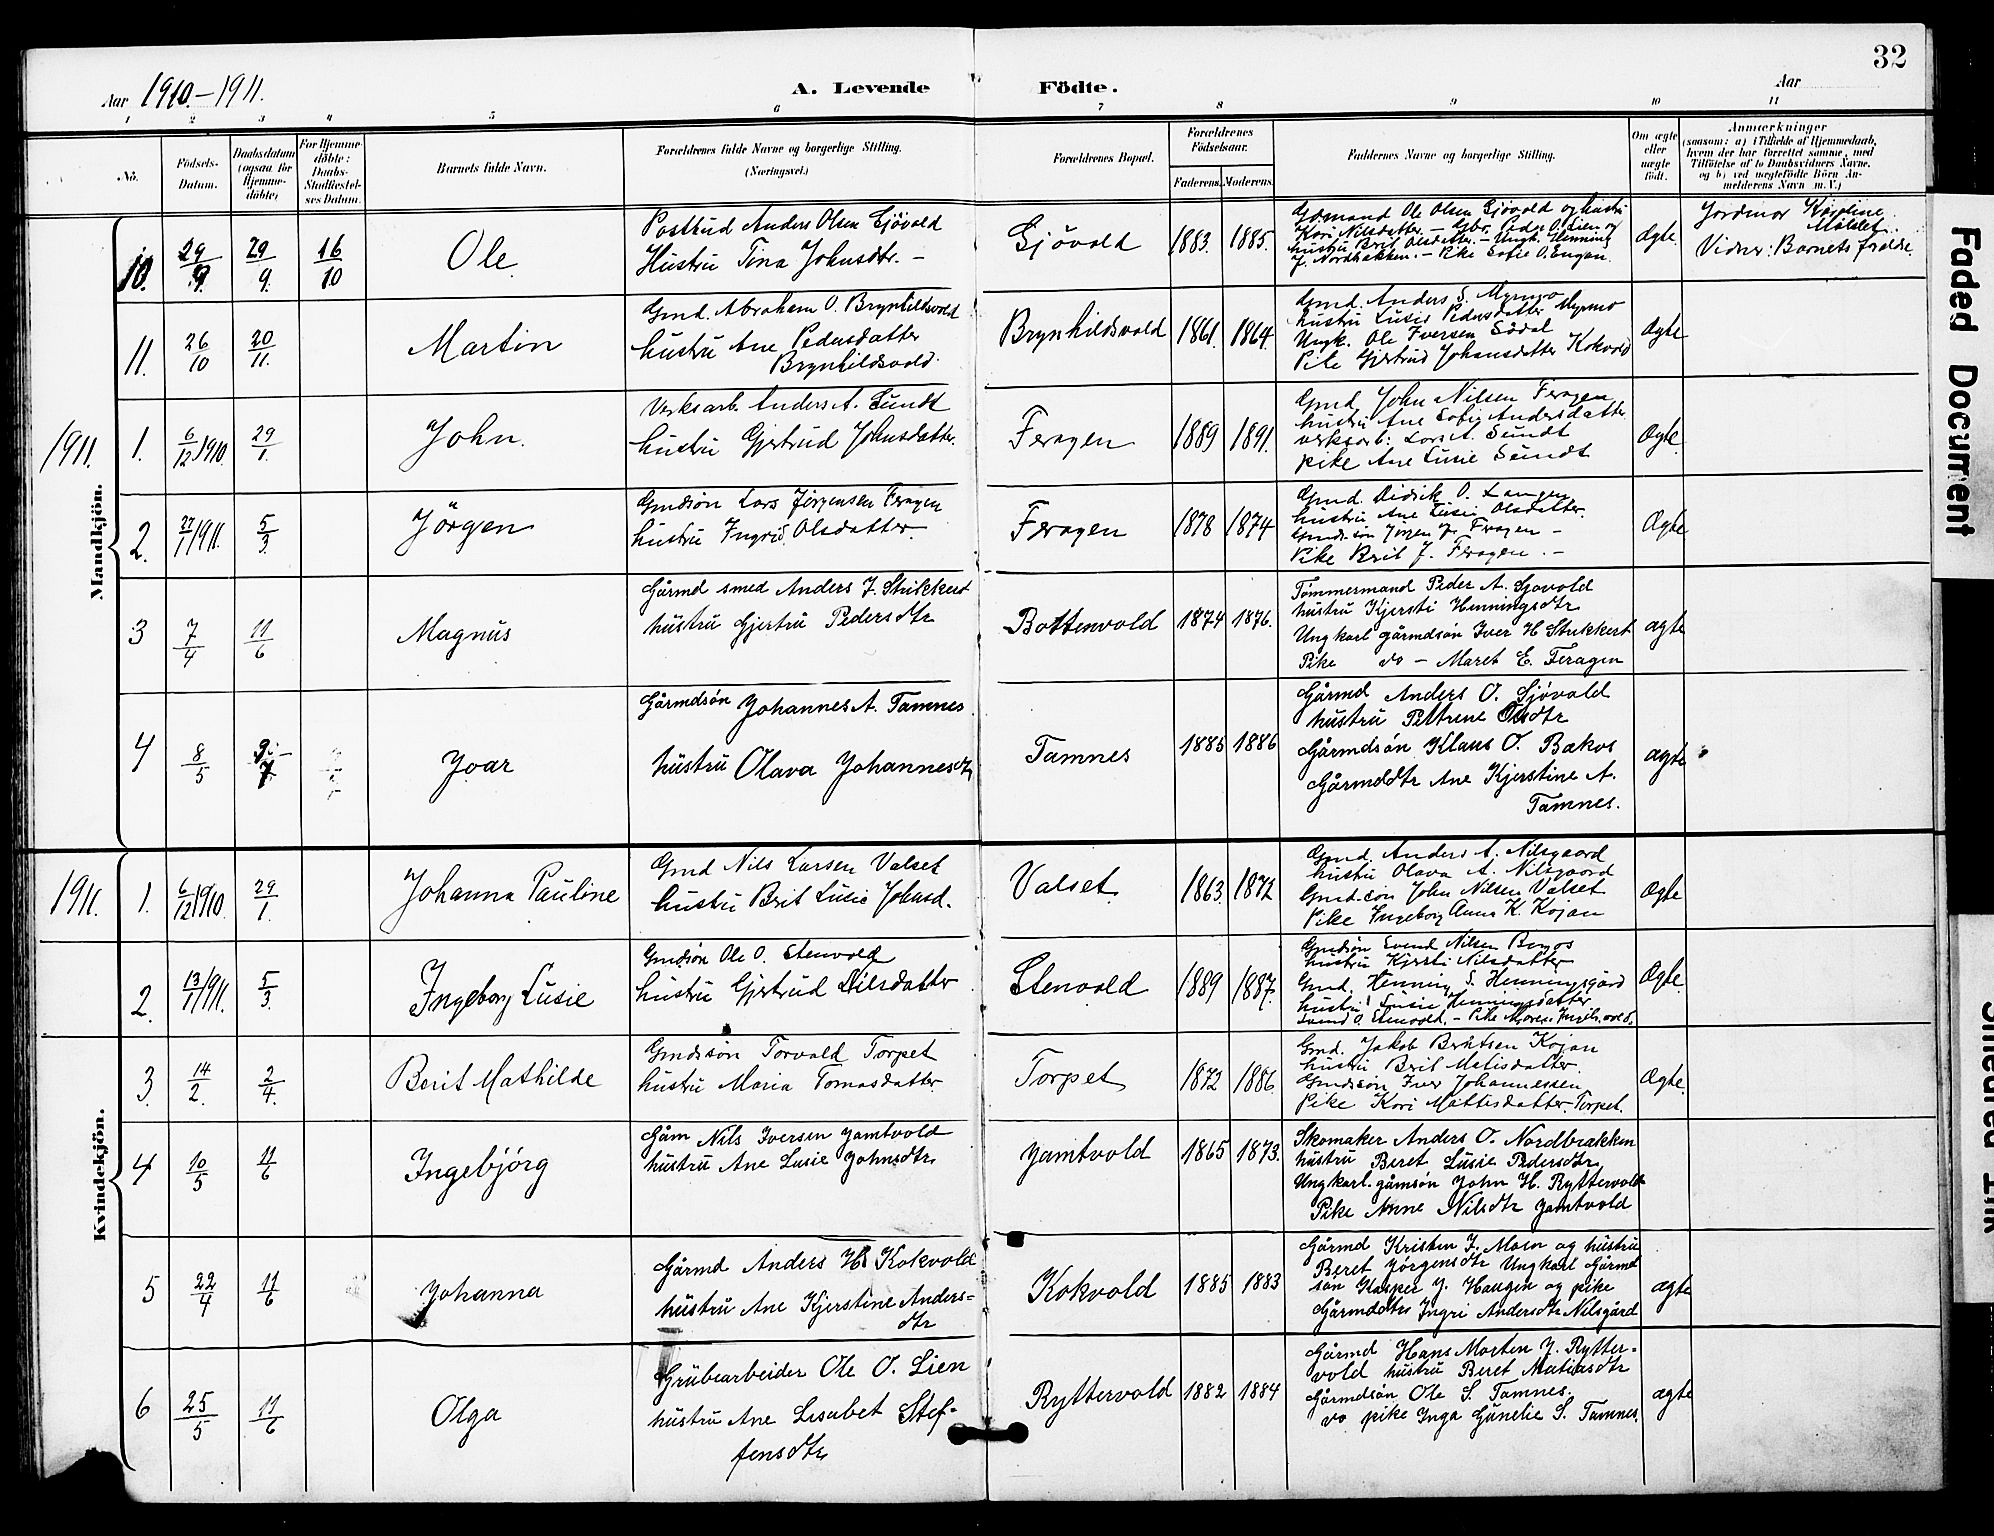 32
Aar 1910.-1911. A. Levende Födte. Aar
1 2 3 4 5 6 7 8 9 10 11
No. Födsels-Datum. Daabsdatum (ogsaa for Hjemmedöbte) For Hjemmedöbte: Daabs-Stadfæstelses Datum. Barnets fulde Navn. Forældrenes fulde Navne og borgerlige Stilling. (Næringsvei.) Forældrenes Bopæl. Forældrenes Födselsaar. Faderens. Moderens. Faddernes Navne og borgerlige Stilling. Om ægte eller uægte födt. Anmærkninger (saasom: a) i Tilfælde af Hjemmedaab, hvem der har forrettet samme, med Tilföielse af to Daabsvidners Navne. og b) ved uægtefödte Börn Anmelderens Navn m. V.)
Mandkjön.
10. 29/9 29/9. 16/10 Ole
Postbud Anders Olsen Sjövold
Hustru Tina Johnsdtr. -
Sjövold 1883. 1885.
Gdmand Ole Olsen Sjövold og hustru
Kari Nilsdatter. - Gbr. Peder O. Lien og
hustru Brit Olsdatter. - Ungk. Henning
J. Nordbakken. - Pike Sofie O. Engen.
Ægte
Jordmor Karoline
Vidner: Barnets forældre.
11. 26/10 20/11. Martin
Gmd. Abraham O. Brynhildsvold
hustru Ane Pedersdatter
Brynhildsvold.
Brynhildsvold 1861. 1864.
Gmd. Anders S. Myrmo
hustru Lusie Pedersdatter Myrmo
Ungk. Ole Iversen Sddal
Pike Gjertrud Johansdatter Kokvold
Ægte
1911. 1. 6/12 1910. 29/1. John.
Verksarb. Anders A. Sundt
hustru Gjertrud Johnsdatter.
Feragen 1889 1891.
Gmd. John Nilsen Feragen
hustru Ane Sofie Andersdatter
verksarb: Lars A. Sundt
pike Ane Lusie Sundt
Ægte.
2. 27/1 1911. 5/3. Jörgen
Gmdsön Lars Jörgensen Feragen
hustru Ingrid Olsdatter.
Feragen 1878 1874
Gmd. Didrik O. Langen
hustru Ane Lusie Olsdatter.
Gmds.sön Jörgen J. Feragen -
Pike Berit J. Feragen. -
Ægte
3 7/4 11/6 Magnus
Gårmd smed Anders J. Stikkert
hustru Gjertru Pedersdtr
Bottenvold 1874 1876.
Tömmermand Peder A. Sjövold
hustru Kjersti Henningsdtr
Ungkarl gårmdsön Iver H Stikkert
Pike do - Maret E. Feragen
ægte
4 8/5 9/7 Joar
Gårmdsön Johannes A. Tamnes
hustru Olava Johannesdtr
Tamnes 1885 1886
Gårmd Anders O. Sjövold
hustru Petrine Olsdtr
Gårmdsön Klaus O. Bakos
Gårmddtr Ane Kjerstine A.
Tamnes.
ægte
Kvindekjön.
1911. 1. 6/12 1910. 29/1. Johanna Pauline
Gmd Nils Larsen Valset
hustru Brit Lusie Johnsd.
Valset 1863. 1872
Gmd. Anders A. Nilsgaard
hustru Olava A. Nilsgaard
Gmd.sön John Nilsen Valset
Pike Ingeborg Anna K. Kojan
Ægte
2. 13/1 1911. 5/3. Ingeborg Lusie
Gmdsön Ole O. Stenvold
hustru Gjertrud Nilsdatter
Stenvold 1889 1887.
Gmdsön Svend Nilsen Borgos
hustru Kjersti Nilsdatter
Gmd. Henning S. Henningsgård
hustru Lusie Henningsdatter
Svend O. Stenvold. - Pike
Ægte.
3. 14/2. 2/4. Berit Mathilde
Gmdsön Torvald Torpet
hustru Maria Tomasdatter
Torpet 1872 1886.
Gmd. Jakob Berntsen Kojan
hustru Berit Matisdatter.
Gmdsön Iver Johannessen
Pike Kari Mattisdatter Torpet.
Ægte.
4 10/5 11/6 Ingebjörg
Gårm Nils Iversen Jamtvold
hustru Ane Lusie Johnsdtr.
Jamtvold 1865 1873.
Skomaker Anders O. Nordbrækken
hustru Beret Lusie Pedersdtr
Ungkarl. gåmsön John H. Ryttervold
Pike Anne Nilsdtr Jamtvold
5 22/4 11/6 Johanna
Gårmd Anders H. Kokvold
hustru Ane Kjerstine Anders=
dtr
Kokvold 1885 1883
Gårmd Kristen J. Moen og hustru
Beret Jörgensdtr Ungkarl Gårmd
sön Kasper J. Haugen og pike
Gårmddtr Ingri Andersdtr Nilsgård
ægte
6 25/5 11/6 Olga
Grubearbeider Ole O. Lien
hustru Ane Lisabet Stef-
fensdtr
Ryttervold 1882 1884
Gårmd Hans Morten J. Rytter=
vold hustru Beret Matiasdtr
Gårmdsön Ole S. Tamnes.
do pike Inga Gunelie S. Tamnes.
ægte
Faded Document
Smeared Ink